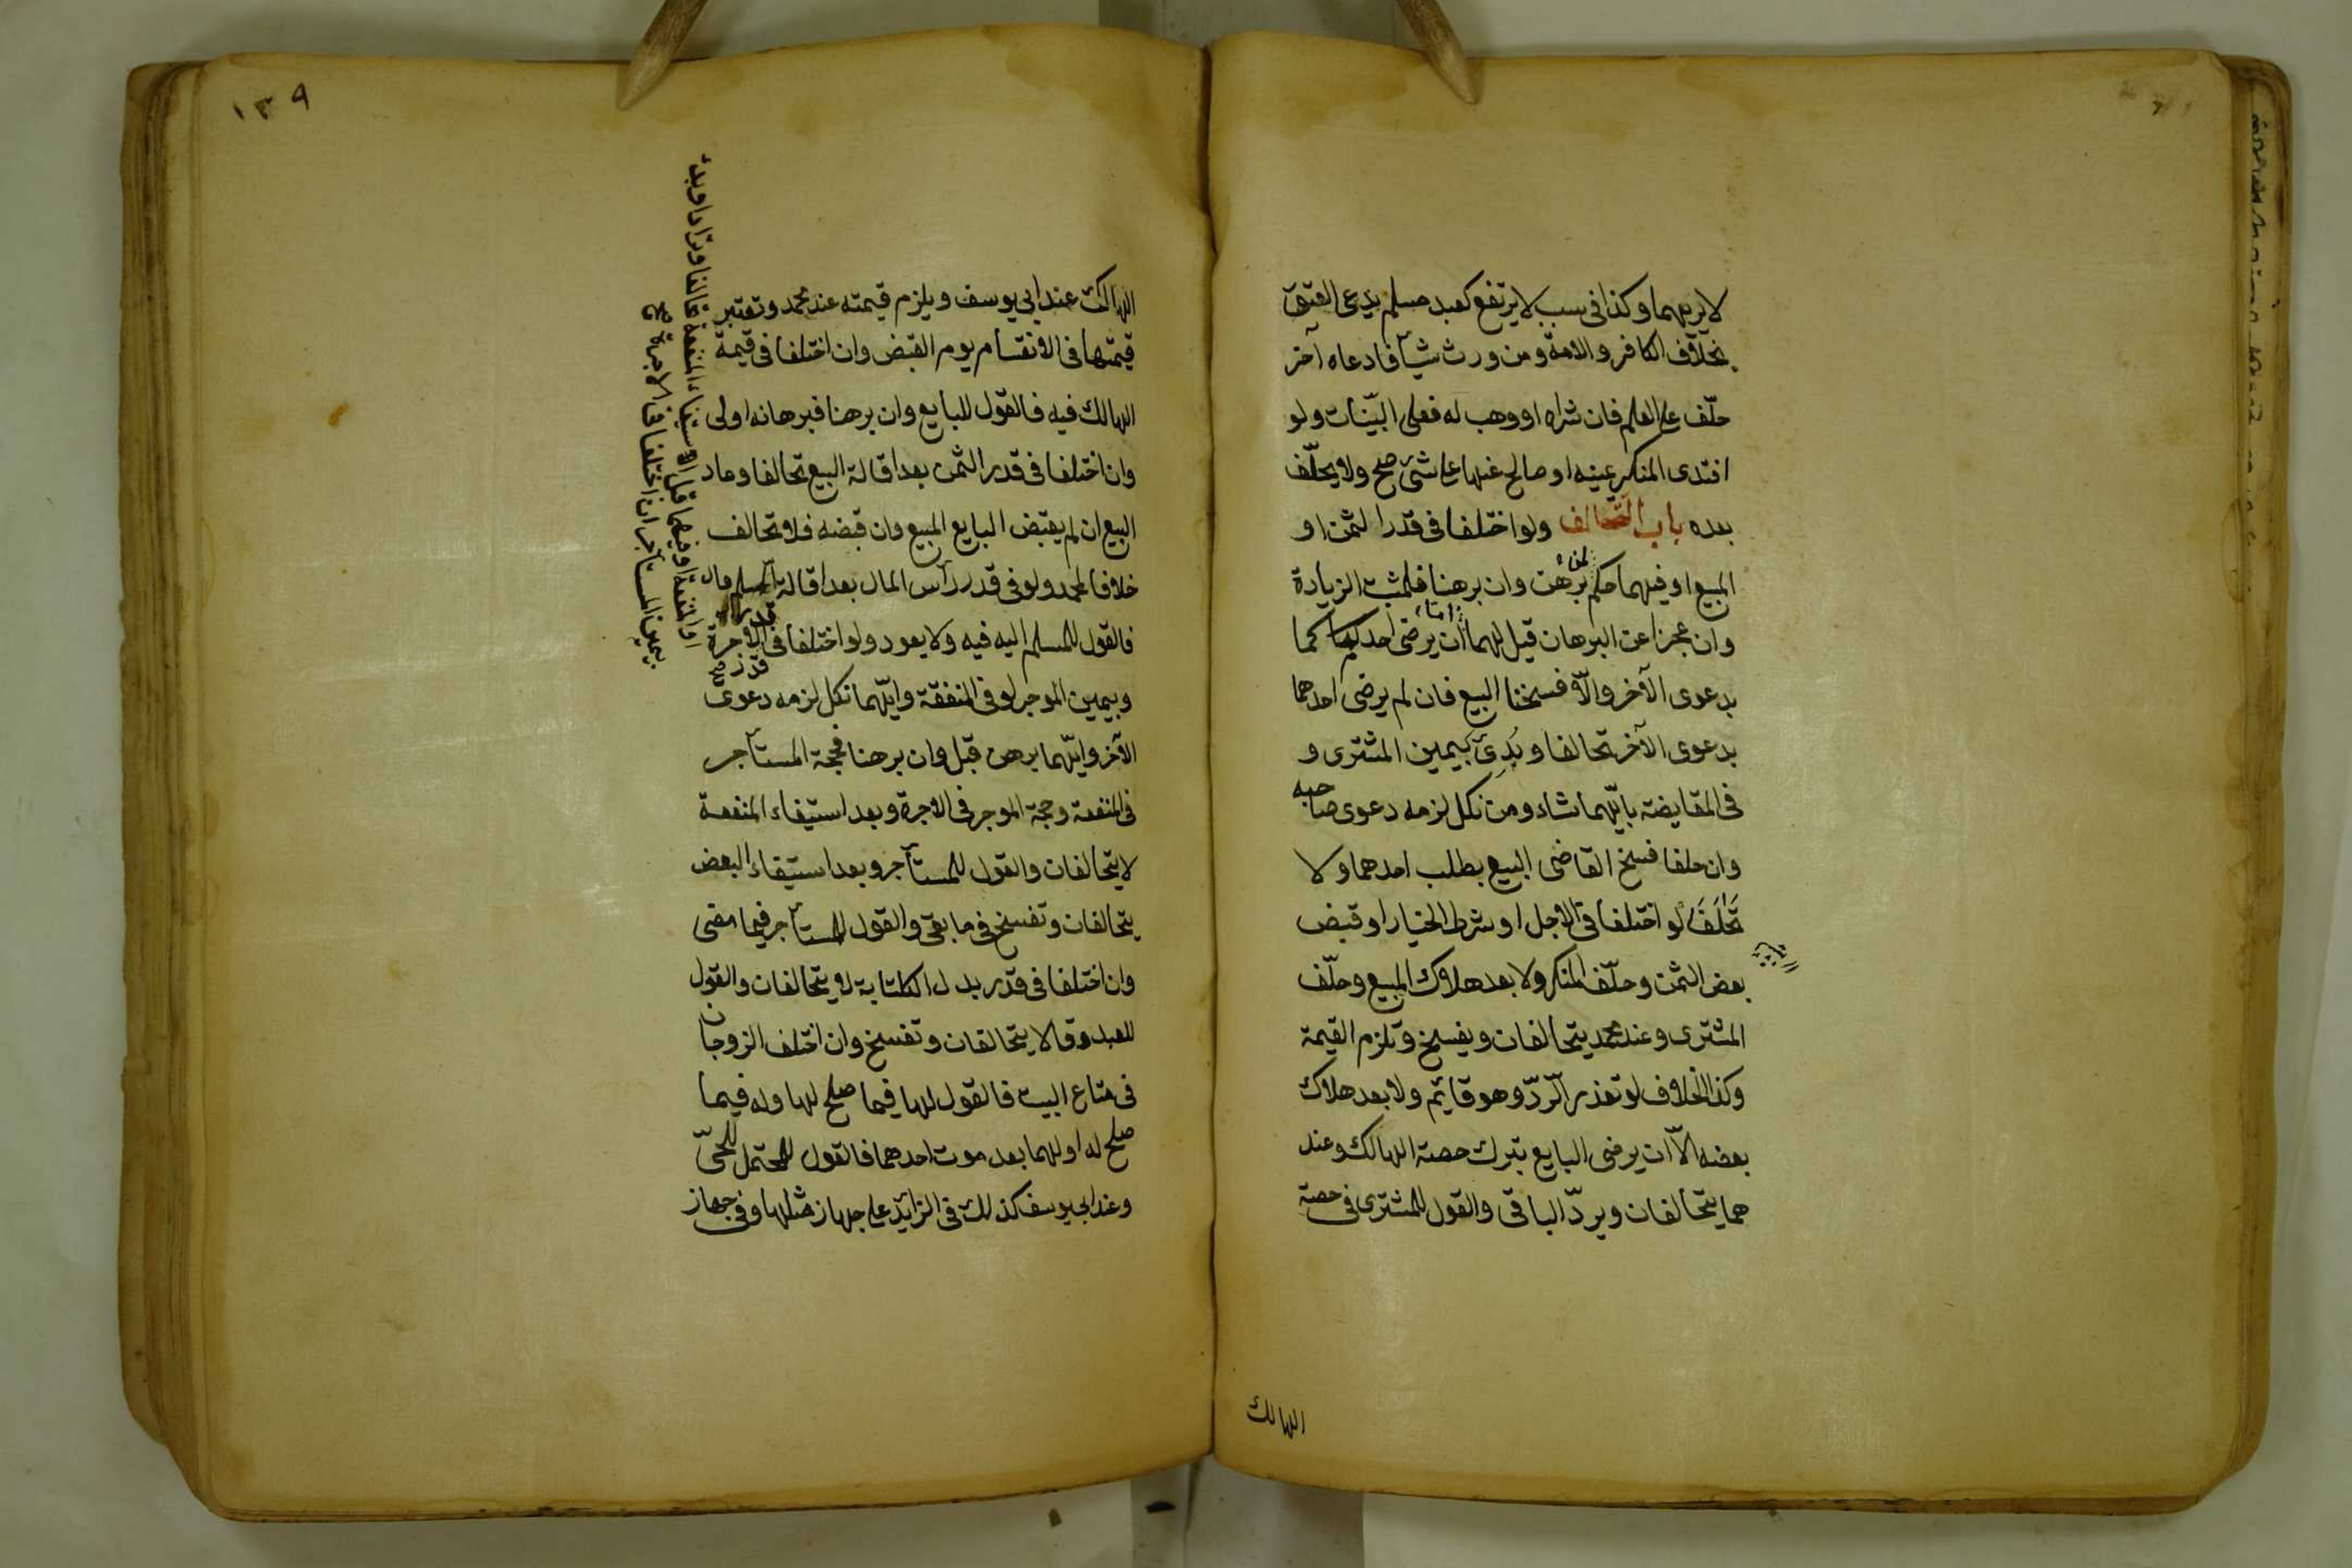 لا يريهما وكذا فى سبب لا يرتفع كعبد مسلم يدعى العتق
بخلاف الكافر والامة ومن ورث شيأ فادعاه آخر
حلّف على العلم فان شراه او وهب له فعلى البتات ولو
افتدى المنكر يمينه او صالح عنها على شئ صح ولا يحلّف
بعده باب التحالف ولو اختلفا فى قدر الثمن او
المبيع او فيهما حكم لمن برهن وان برهنا فلمثبت الزيادة
وان عجزا عن البرهان قيل لهما اما ان يرضى احدكما كما
بدعوى الآخر والّا فسخنا البيع فان لم يرضى احدهما
بدعوى الآخر تحالفا وبُدِئ بيمين المشترى و
فى المقايضة بايّهما شاء ومن نكل لزمه دعوى صاحبه
وان حلفا فسخ القاضى البيع بطلب احدهما ولا
تحالف لو اختلفا فى الاجل او شرط الخيار او قبض
بعض الثمن وحلّف المنكر ولا بعد هلاك المبيع وحلّف
المشترى وعند محمد يتحالفان ويفسخ وتلزم القيمة
وكذا الخلاف لو تعذر الردّ وهو قايم ولا بعد هلاك
بعضه الّا ان يرضى البايع بترك حصة الهالك وعند
هما يتحالفان ويردّ الباقى والقول للمشترى فى حصة
الهالك
١٣٩
الهالك عند ابى يوسف ويلزم قيمته عند محمد وتعتبر
قيمتها فى الانقسام يوم القبض وان اختلفا فى قيمة
الهالك فيه فالقول للبايع وان برهنا فبرهانه اولى
وان اختلفا فى قدر الثمن بعد اقالة البيع تحالفا وعاد
البيع ان لم يقبض البايع المبيع وان قبضه فلا تحالف
خلافا لمحمد ولو فى قدر رأس المال بعد اقالة السلم
فالقول للمسلم اليه فيه ولا يعود ولو اختلفا فى الأجرة
وبيمين الموجر لو فى المنفقة وايّهما نكل لزمه دعوى
الآخر وايّهما برهن قبل وان برهنا فحجة المستأجر
فى المنفعة وحجة الموجر فى الاجرة وبعد استيفاء المنفعة
لا يتحالفان والقول للمستأجر وبعد استيفاء البعض
يتحالفان وتفسخ فى ما بقى والقول للمستأجر فيما مضى
وان اختلفا فى قدر بدل الكتابة لا يتحالفان والقول
للعبد وقالا يتحالفان وتفسخ وان اختلف الزوجان
فى متاع البيت فالقول لها فيما صلح لها وله فيما
صلح له او لهما بعد موت احدهما فالقول للمحتمل للحىّ
وعند ابى يوسف كذلك فى الزايد على جهاز مثلها وفى جهاز
او المنفعة او فيهما قبل الاستيفاء المنفعة تحالفا وترادا وبدئ
بيمين المستأجر ان اختلفا فى الاجرة صح